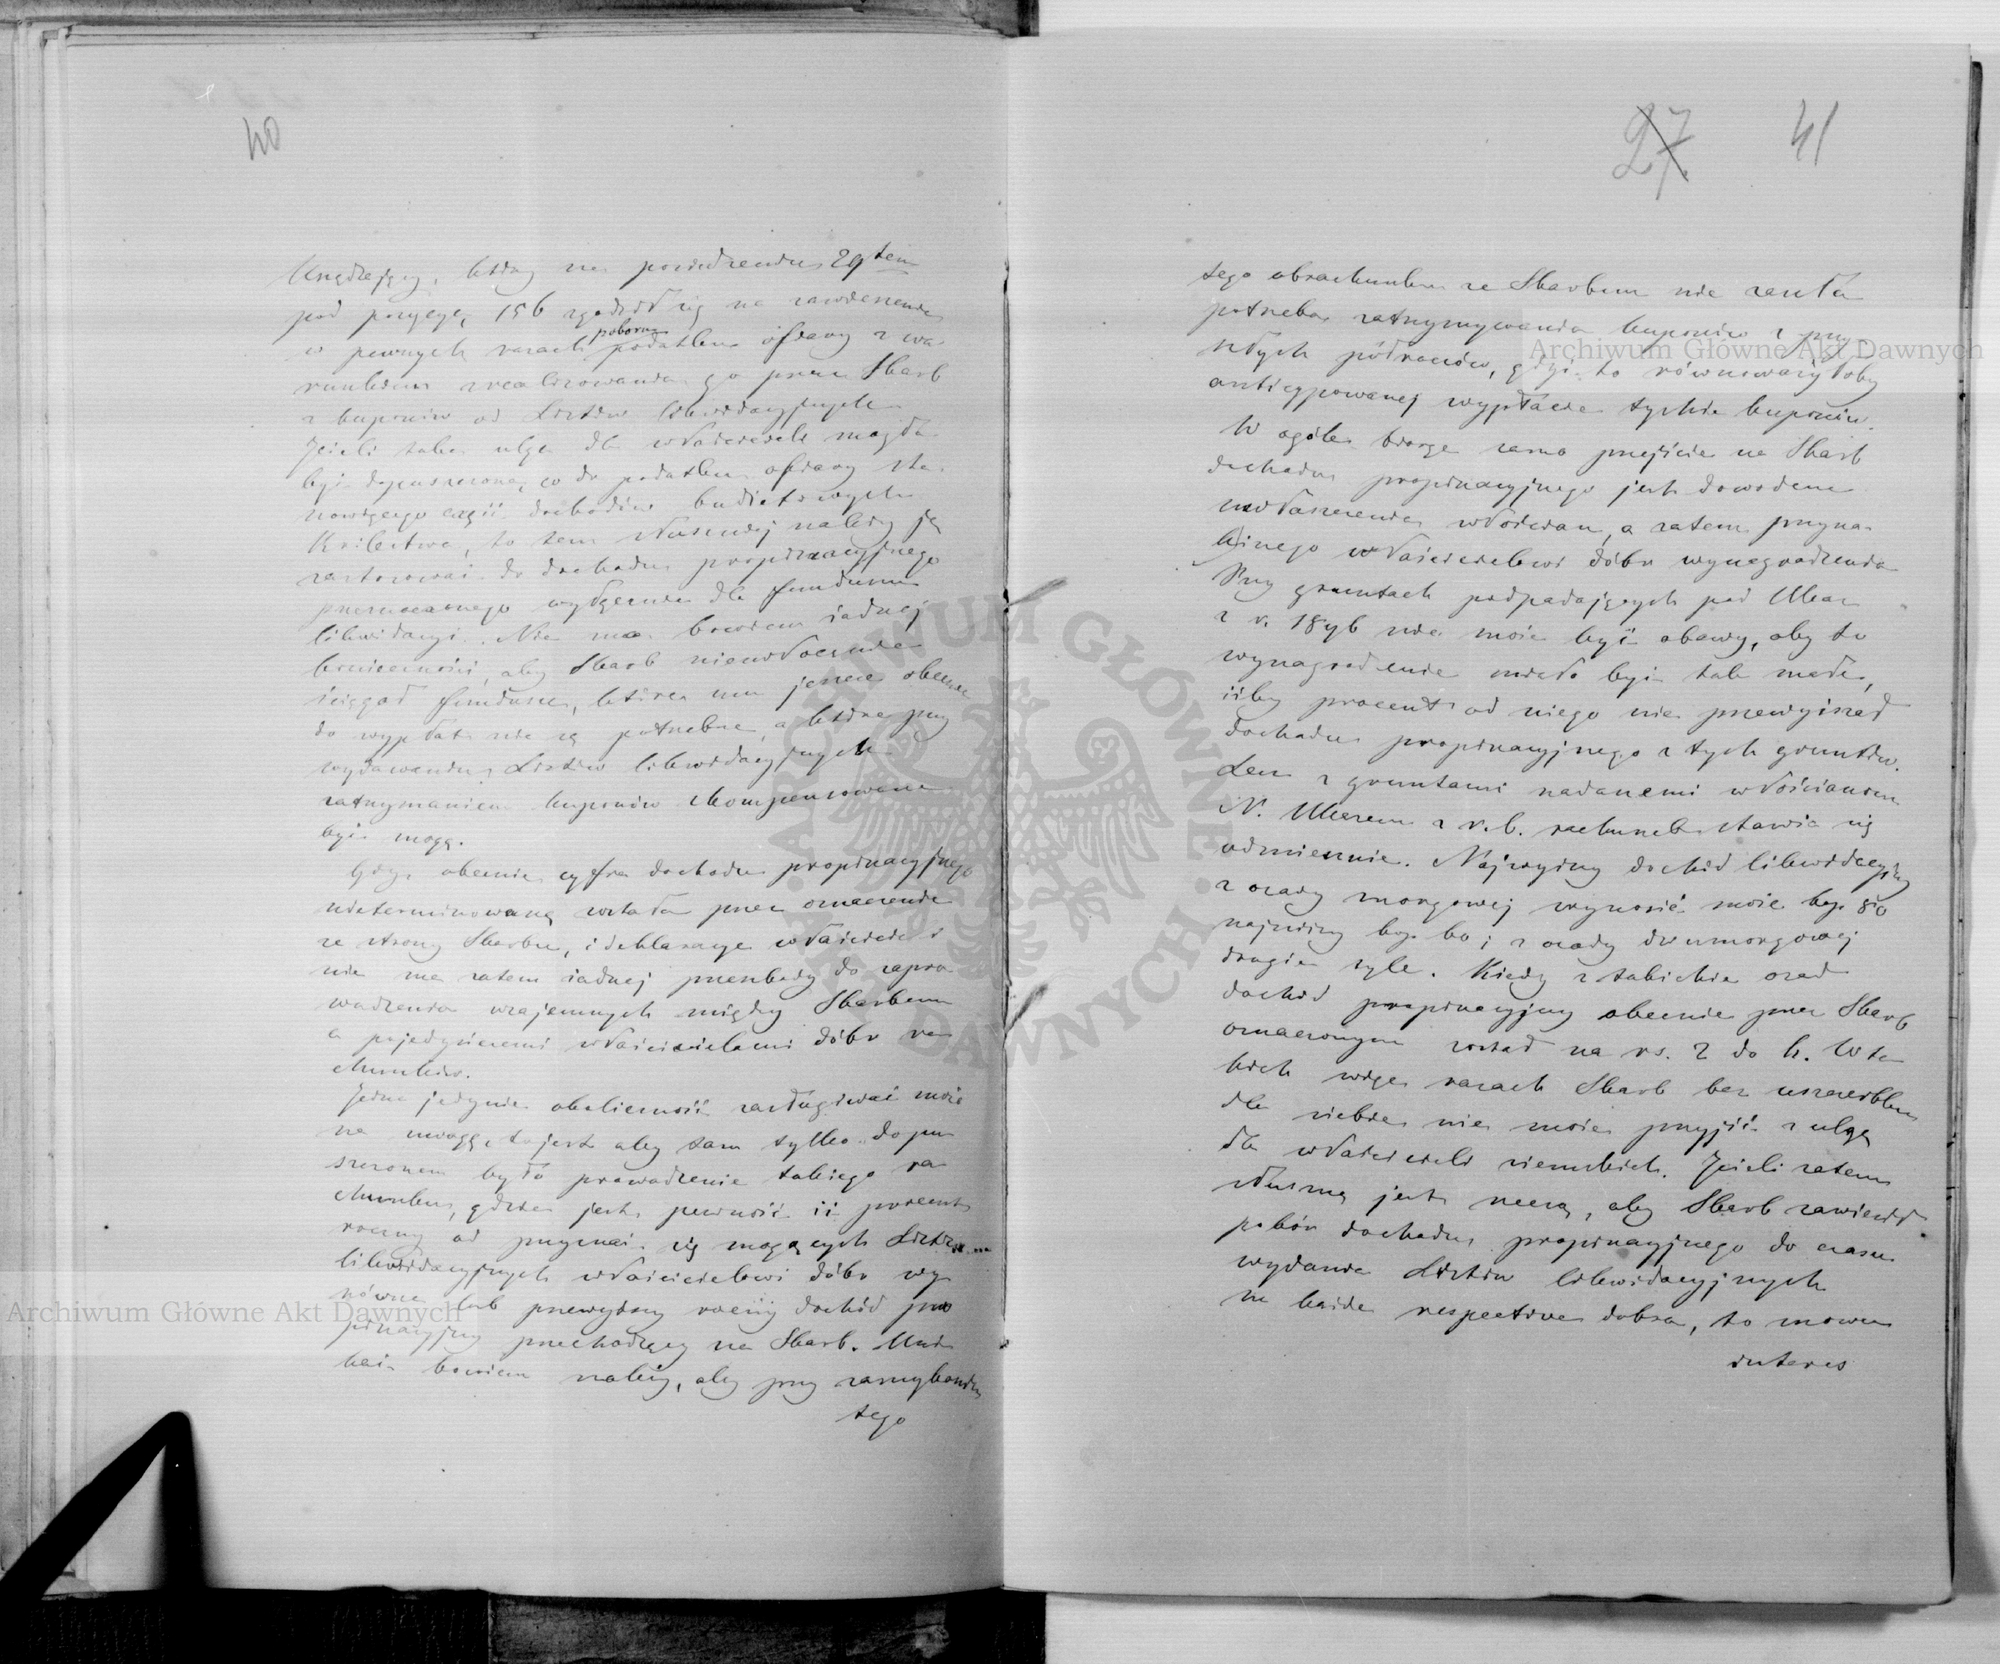 40
Urządzający, który na posiedzeniu 29tem
pod pozycyą 156 zgodził się na zawieszenie
w pewnych razach poboru podatku ofiary z wa-
runkiem zrealizowania go przez Skarb
z kuponów od Listów likwidacyjnych
Jeżeli taka ulga dla właścicieli mogła
być dopuszczona, co do podatku ofiary sta-
nowiącego część dochodów budżetowych
Królestwa, to tem słuszniej należy ją
zastosować do dochodu propinacyjnego
przeznaczonego wyłącznie dla funduszu
likwidacyi. Nie ma bowiem żadnej
konieczności, aby Skarb niezwłocznie
ściągał fundusze, które mu jeszcze obecnie
do wypłat nie są potrzebne, a które przy
wydawaniu Listów likwidacyjnych
zatrzymaniem kuponów skompensowane
być mogą.
Gdy obecnie cyfra dochodu propinacyjnego
zdeterminowaną została przez oznaczenie
ze strony Skarbu, i deklaracye właścicieli
nie ma zatem żadnej przeszkody do zapro-
wadzenia wzajemnych między Skarbem
a pojedyńczemi właścicielami dóbr ra-
chunków.
Jedna jedynie okoliczność zasługiwać może
na uwagę, to jest aby tam tylko dopu-
szczonem było prowadzenie takiego ra-
chunku, gdzie jest pewność iż procent
roczny od przyznać się mogących Listów
likwidacyjnych właścicielowi dóbr wy-
równa lub przewyższy roczny dochód pro-
pinacyjny przechodzący na Skarb. Uni-
kać bowiem należy, aby przy zamykaniu
tego
27 41
tego obrachunku ze Skarbem nie zaszła
potrzeba zatrzymywania kuponów z przy-
szłych półroczów, gdyż to równoważyłoby
anticypowanej wypłacie tychże kuponów.
W ogóle biorąc samo przejście na Skarb
dochodu propinacyjnego jest dowodem
uwłaszczenia włościan, a zatem przyna-
leżnego właścicielowi dóbr wynagrodzenia
Przy gruntach podpadających pod Ukaz
z r. 1846 nie może być obawy, aby to
wynagrodzenie miało być tak małe,
iżby procent od niego nie przewyższał
dochodu propinacyjnego z tych gruntów.
Lecz z gruntami nadanemi włościanom
N. Ukazem z r. b. rachunek stawia się
odmiennie. Najwyższy dochód likwidacyjny
z osady morgowej wynosić może kop. 80
najniższy kop. 60; z osady dwumorgowej
drugie tyle. Kiedy z takichże osad
dochód propinacyjny obecnie przez Skarb
oznaczonym został na rs. 2 do 4. W ta-
kich więc razach Skarb bez uszczerbku
dla siebie nie może przyjść z ulgą
dla właścicieli ziemskich. Jeżeli zatem
słuszną jest rzeczą, aby Skarb zawiesił
pobór dochodu propinacyjnego do czasu
wydania Listów likwidacyjnych
na każde respective dobra, to znowu
interes
Archiwum Główne Akt Dawnych
Archiwum Główne Akt Dawnych
ARCHIWUM GŁÓWNE AKT DAWNYCH